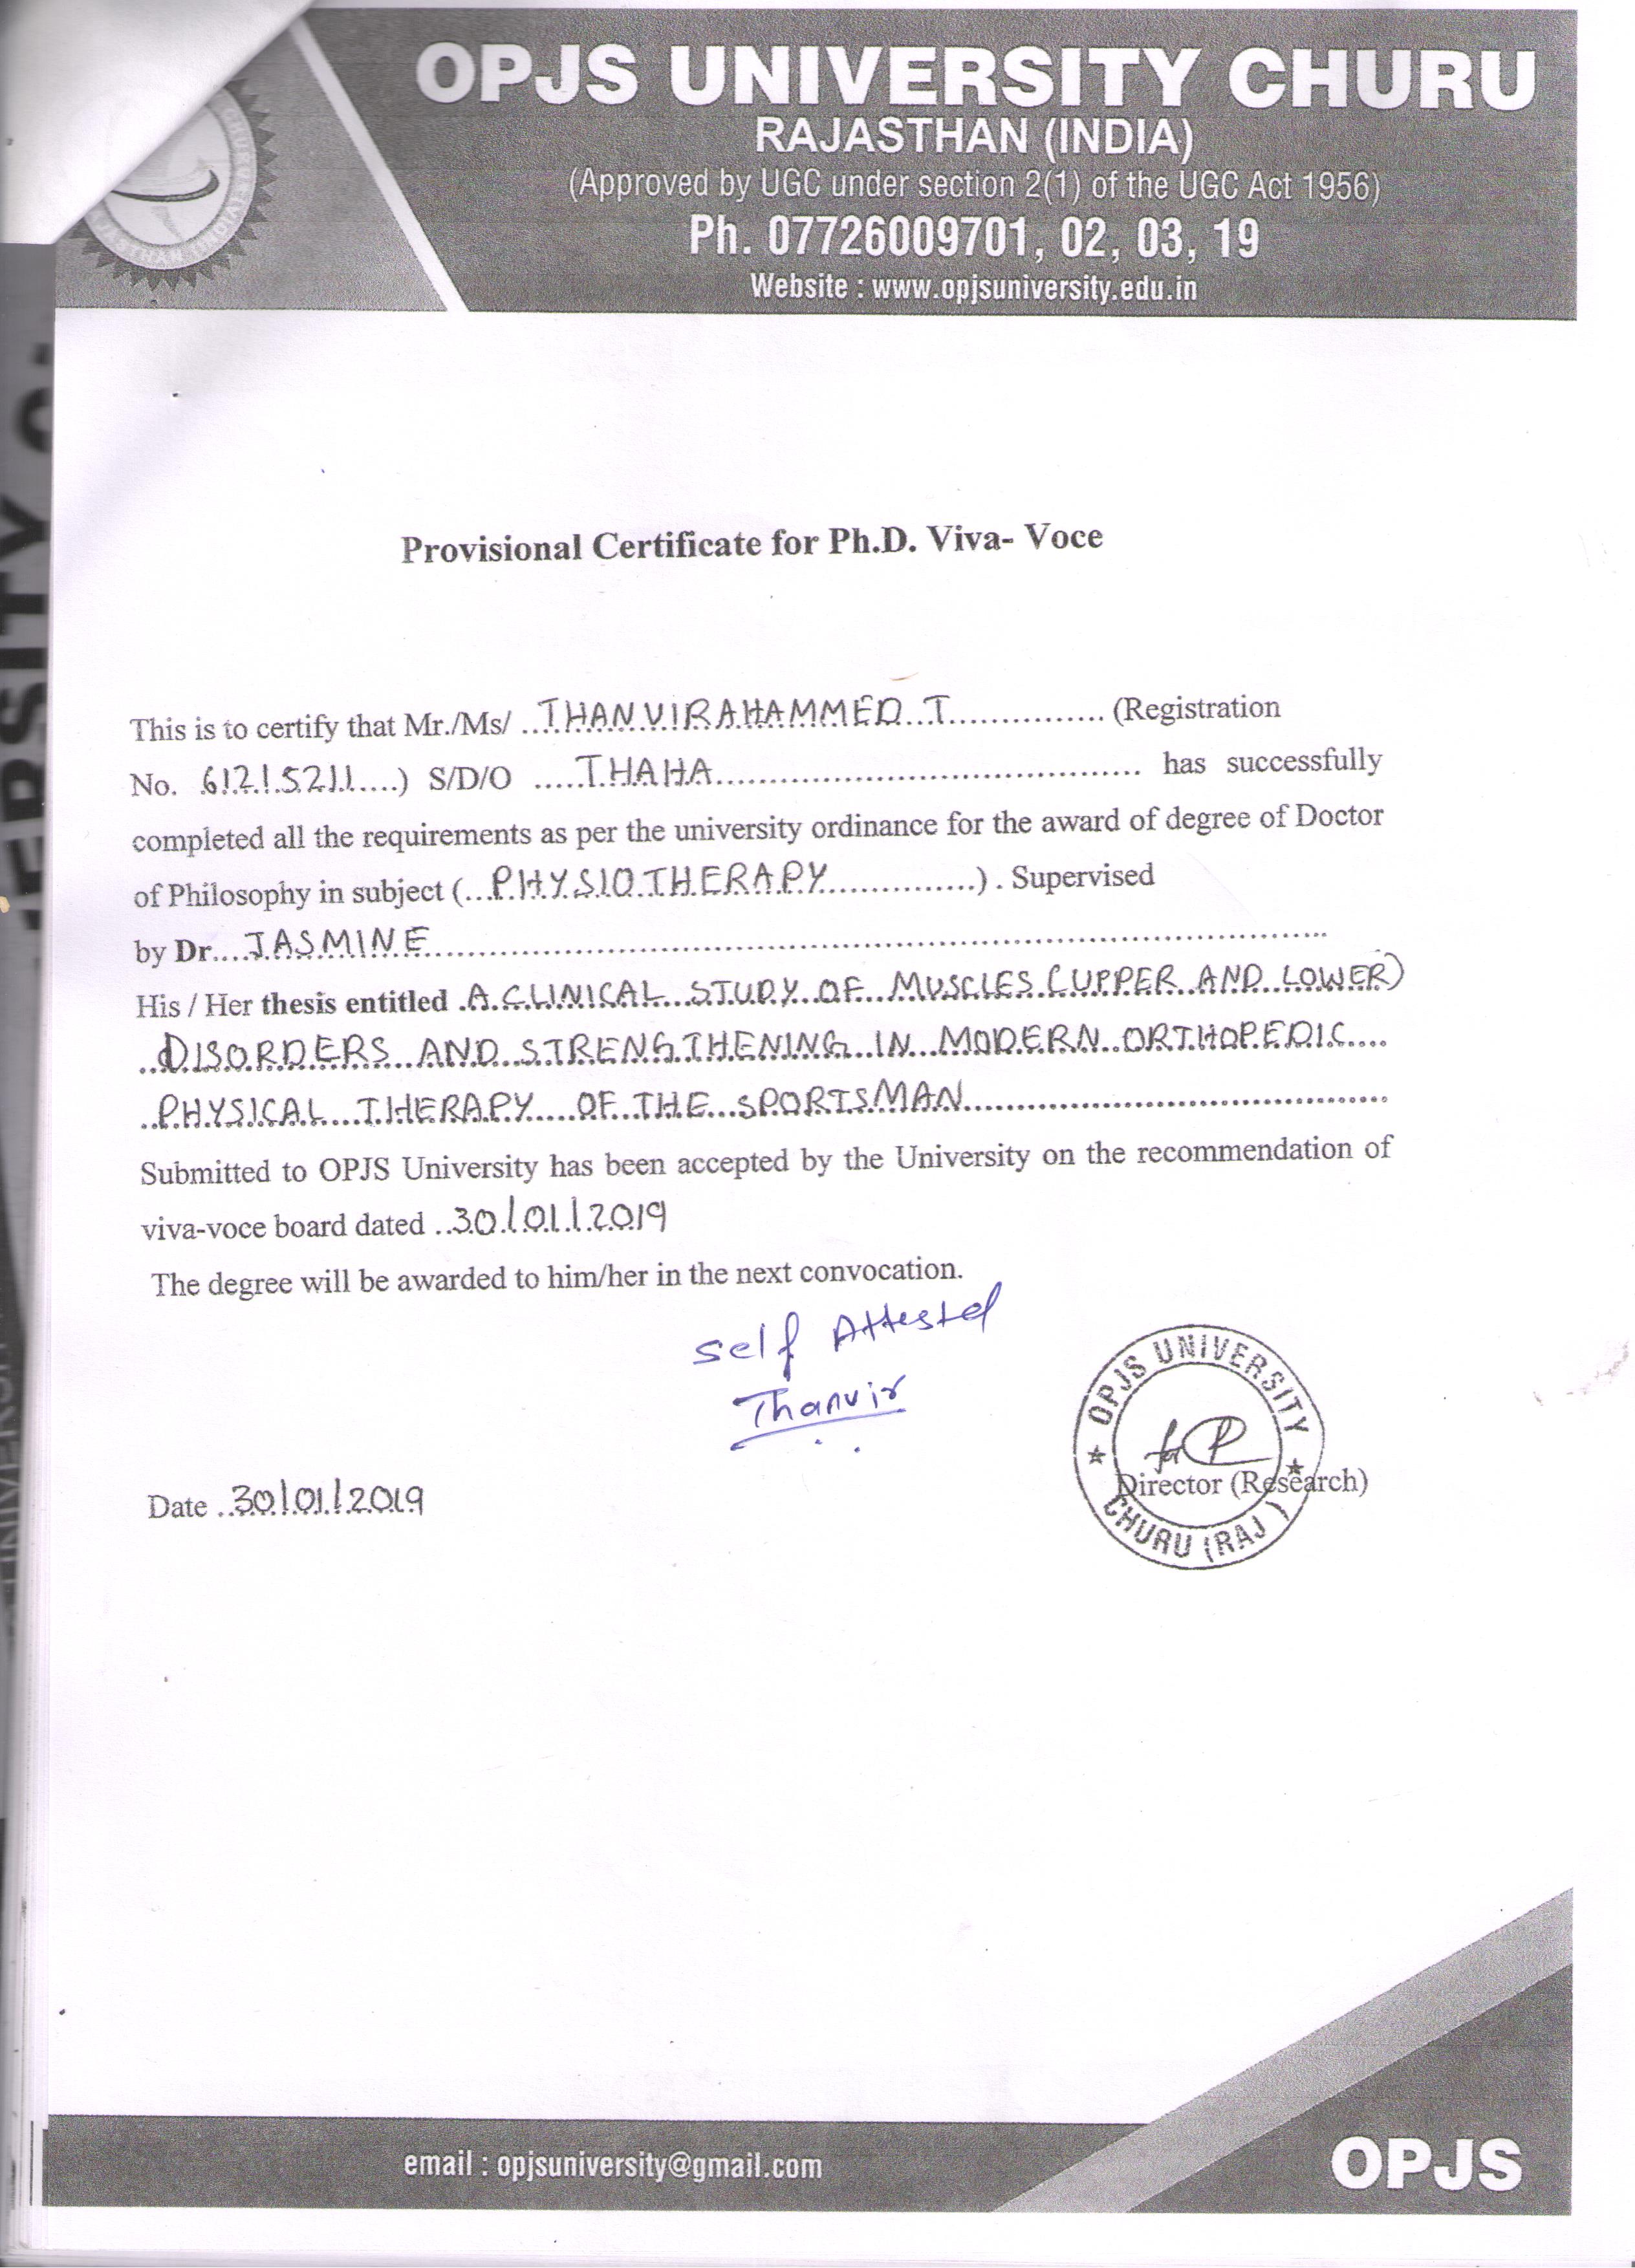 OPJS UNIVERSITY CHURU
RAJASTHAN (INDIA)
(Approved by UGC under section 2(1) of the UGC Act 1956)
Ph. 07726009701, 02, 03, 19
Website : www.opjsuniversity.edu.in
Provisional Certificate for Ph.D. Viva- Voce
This is to certify that Mr./Ms/ ...THANVIRAHAMMED T............... (Registration
No. 61215211....) S/D/O .....THAHA.......................................... has successfully
completed all the requirements as per the university ordinance for the award of degree of Doctor
of Philosophy in subject (...PHYSIOTHERAPY...............) . Supervised
by Dr....JASMINE..........................................................................................
His / Her thesis entitled .A CLINICAL STUDY OF MUSCLES (UPPER AND LOWER)
...DISORDERS AND STRENGTHENING IN MODERN ORTHOPEDIC....
..PHYSICAL THERAPY OF THE SPORTSMAN...........................................
Submitted to OPJS University has been accepted by the University on the recommendation of
viva-voce board dated ..30/01/2019
The degree will be awarded to him/her in the next convocation.
Self Attested
Thanvir
OPJS UNIVERSITY
for
Director (Research)
CHURU (RAJ )
Date ..30/01/2019
email : opjsuniversity@gmail.com
OPJS